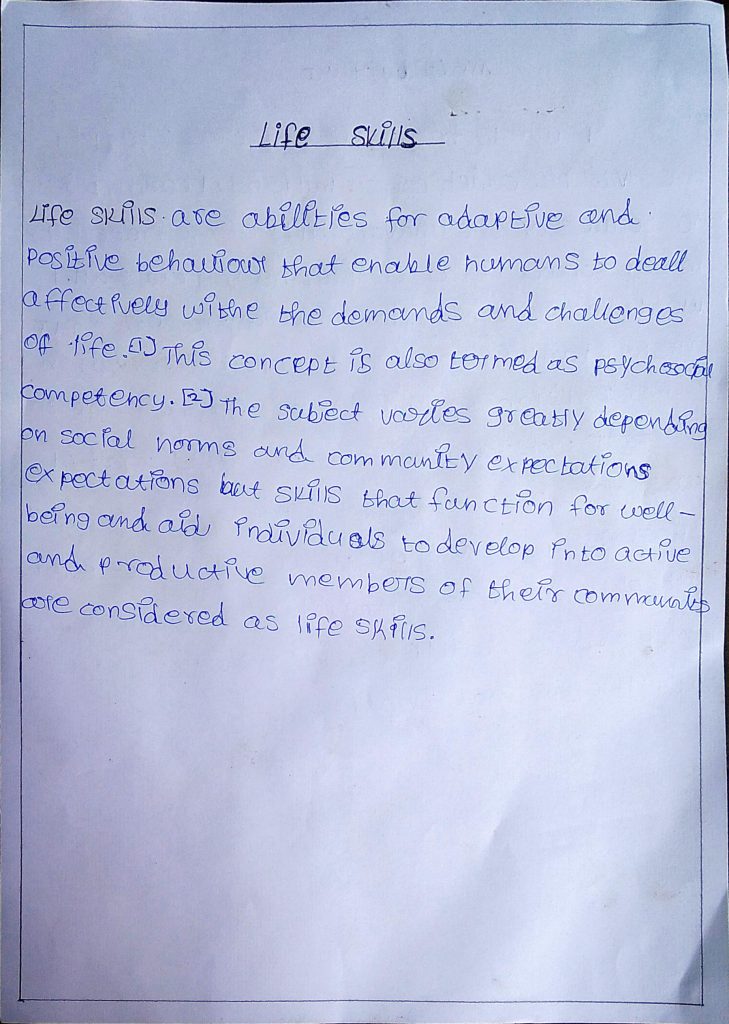 Life Skills
Life Skills are abilities for adaptive and
positive behaviour that enable humans to deall
affectively withe the demands and challenges
of life.[1] This concept is also termed as psychosocial
competency.[2] The subject varies greatly depending
on social norms and community expectations
expectations but skills that function for well-
being and aid individuals to develop into active
and productive members of their communities
are considered as life skills.